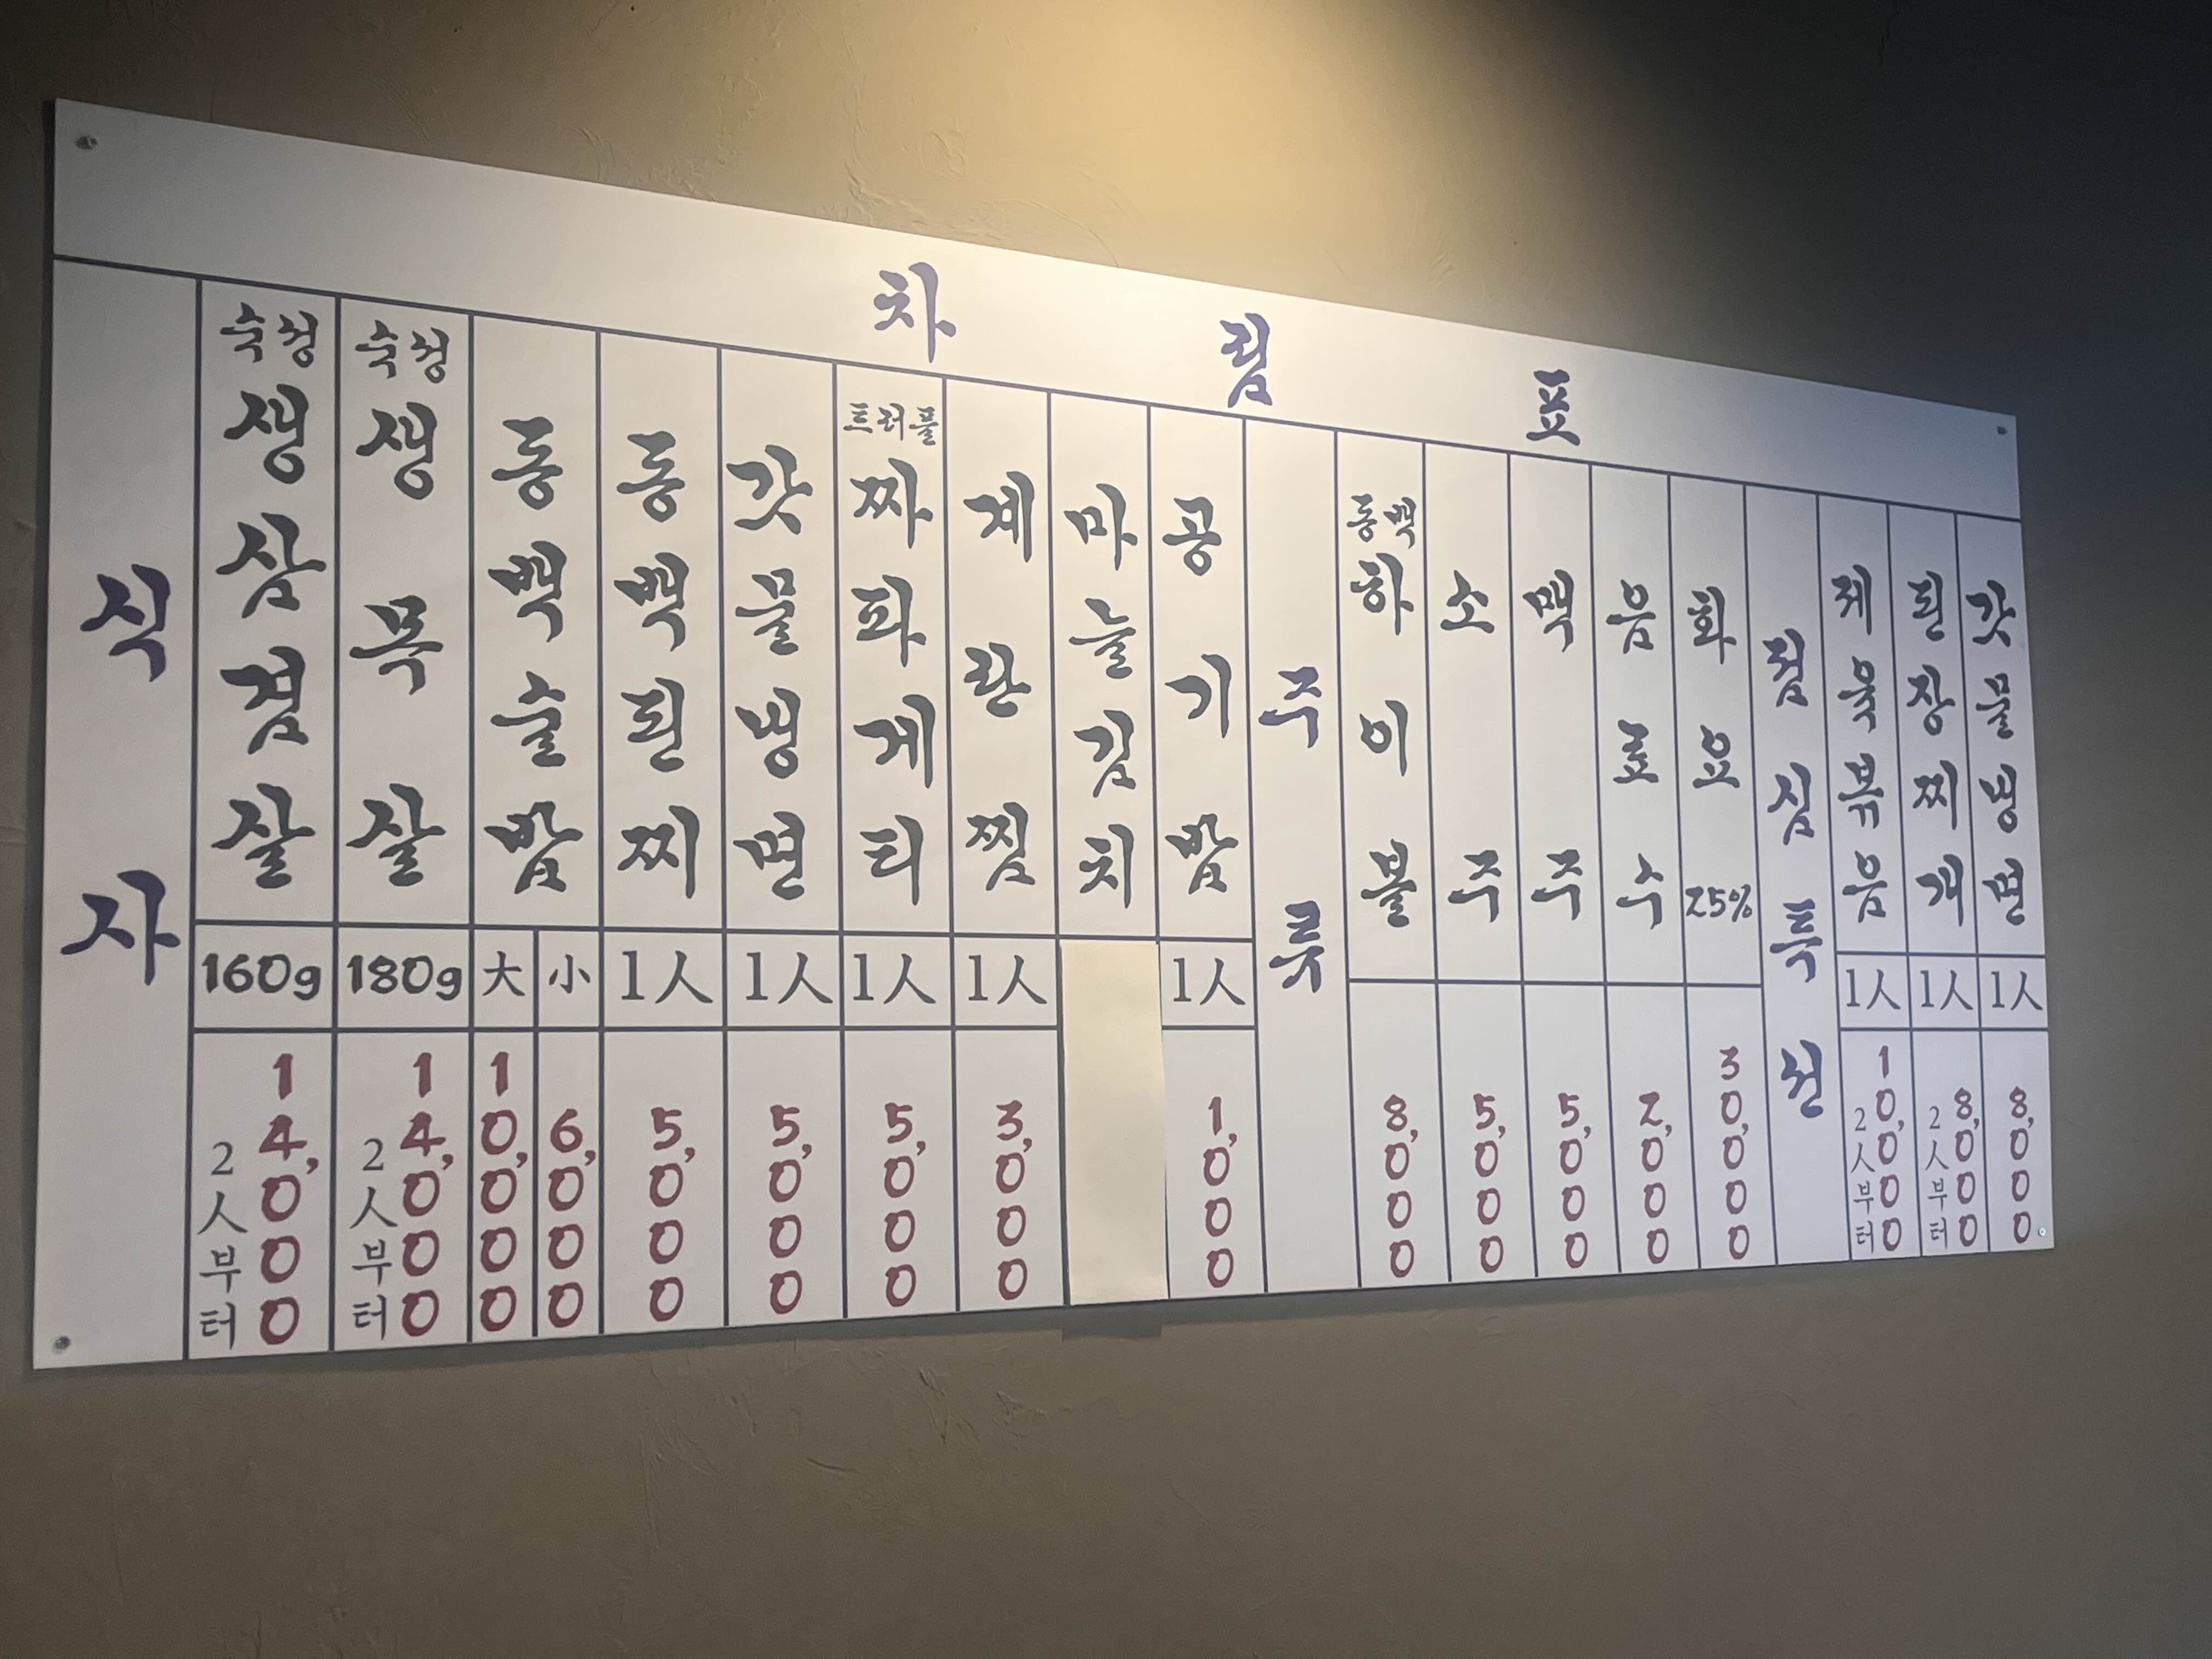 차림표
식사
숙성 생삼겹살
160g
14,000
2人부터
숙성 생목살
180g
14,000
2人부터
동백술밥
大
10,000
小
6,000
동백된찌
1人
5,000
갓물냉면
1人
5,000
트러플 짜파게티
1人
5,000
계란찜
1人
3,000
마늘김치
공기밥
1人
1,000
주류
동백 하이볼
8,000
소주
5,000
맥주
5,000
음료수
2,000
화요 25%
30,000
점심특선
제육볶음
1人
10,000
2人부터
된장찌개
1人
8,000
2人부터
갓물냉면
1人
8,000